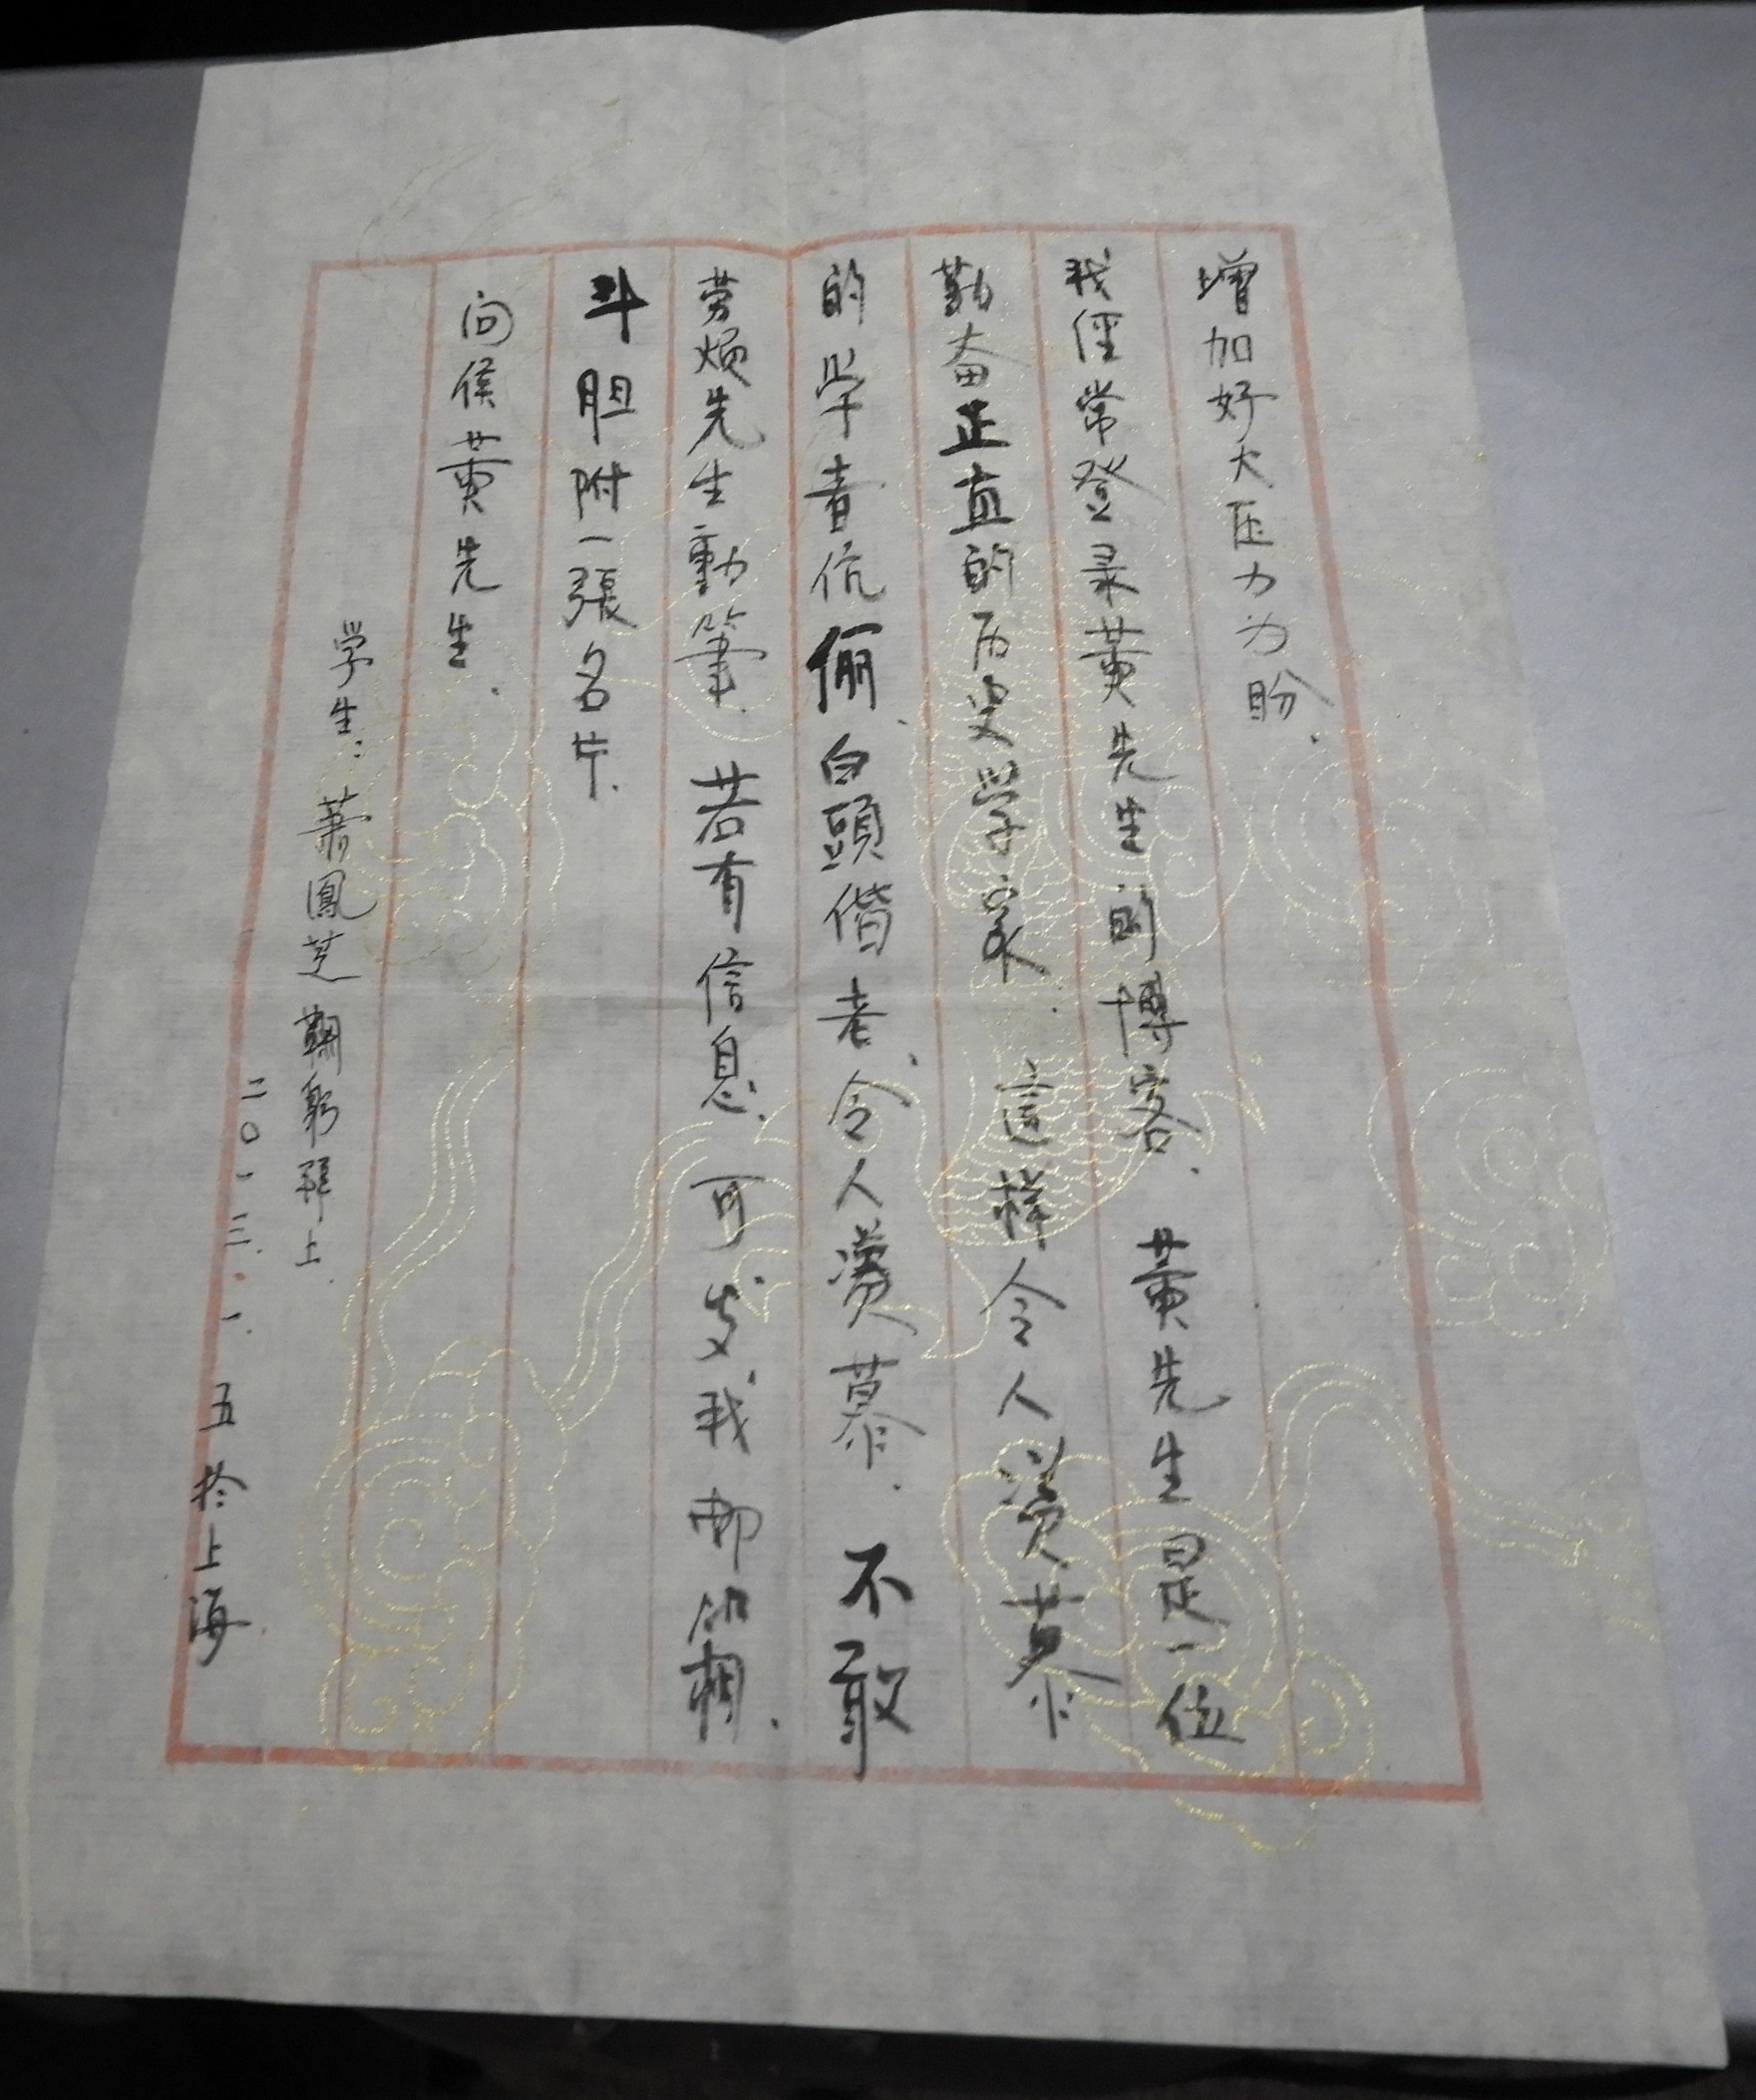 增加好大压力为盼.
我俓常登录黄先生的博客. 黄先生是一位
勤奋正直的历史学家. 這样令人羡慕
的学者伉俪、白頭偕老、令人羡慕. 不敢
劳烦先生動筆. 若有信息. 可发我邮箱.
斗胆附一張名片.
问侯黄先生.
学生: 萧鳳芝 鞠躬拜上.
二〇一三.一.五於上海